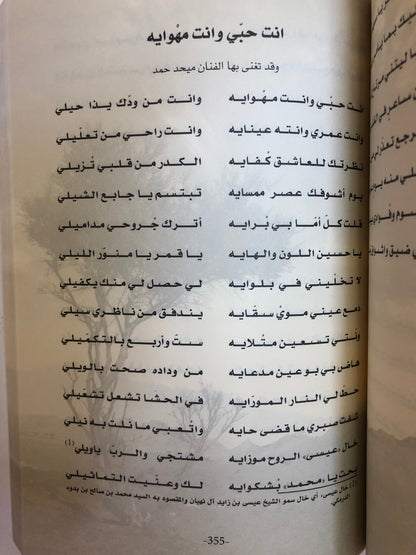 انت حبّي وانت مهْوايه
وقد تغنى بها الفنان ميحد حمد
انت حبّي وانت مهْوايه وانت من ودّك يذا حيلي
وانت عمري وانته عينايه وانت راحي من تعلّيلي
نظرتك للعاشق كْفايه الكدر من قلبي تْزيلي
يوم أشوفك عصر ممسايه تبتسم يا جابع الشيلي
قلت كلّ أمّا بي بْرايه أترك جْروحي مداميلي
يا حسين اللون والهايه يا قمر يا منوّر الليلي
لا تخلّيني في بلوايه لي حصل لي منك يكفيلي
دمع عيني مويْ سقّايه يندفق من ناظري سيلي
وقتي تسعين متْلايه ستّ وأربع بالتكمْيلي
هاض بي بو عين مدعايه من وداده صحت بالويلي
حطّ لي النار المورّايه في الحشا تشعل تشعْيلي
تلفت صبري ما قضى حايه واتْعبي ما نلت به نيلي
خال «عيسى» الروح موزايه مشتجي والربّ ياويلي (1)
بحت يا «محمد» بْشكوايه لك وعنّيت التماثيلي
(1) خال عيسى، أي خال سمو الشيخ عيسى بن زايد آل نهيان والمقصود به السيد محمد بن صالح بن بدوه الدرمكي.
-355-